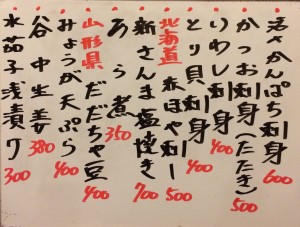 活さかんぱち刺身 600
かつお刺身(たたき) 500
いわし刺身 400
とり貝刺身 400
北海道 赤ほや刺し 500
新さんま塩焼き 700
あら煮 350
山形県 だだちゃ豆 400
みょうが天ぷら 400
谷中生姜 380
水茄子浅漬け 300